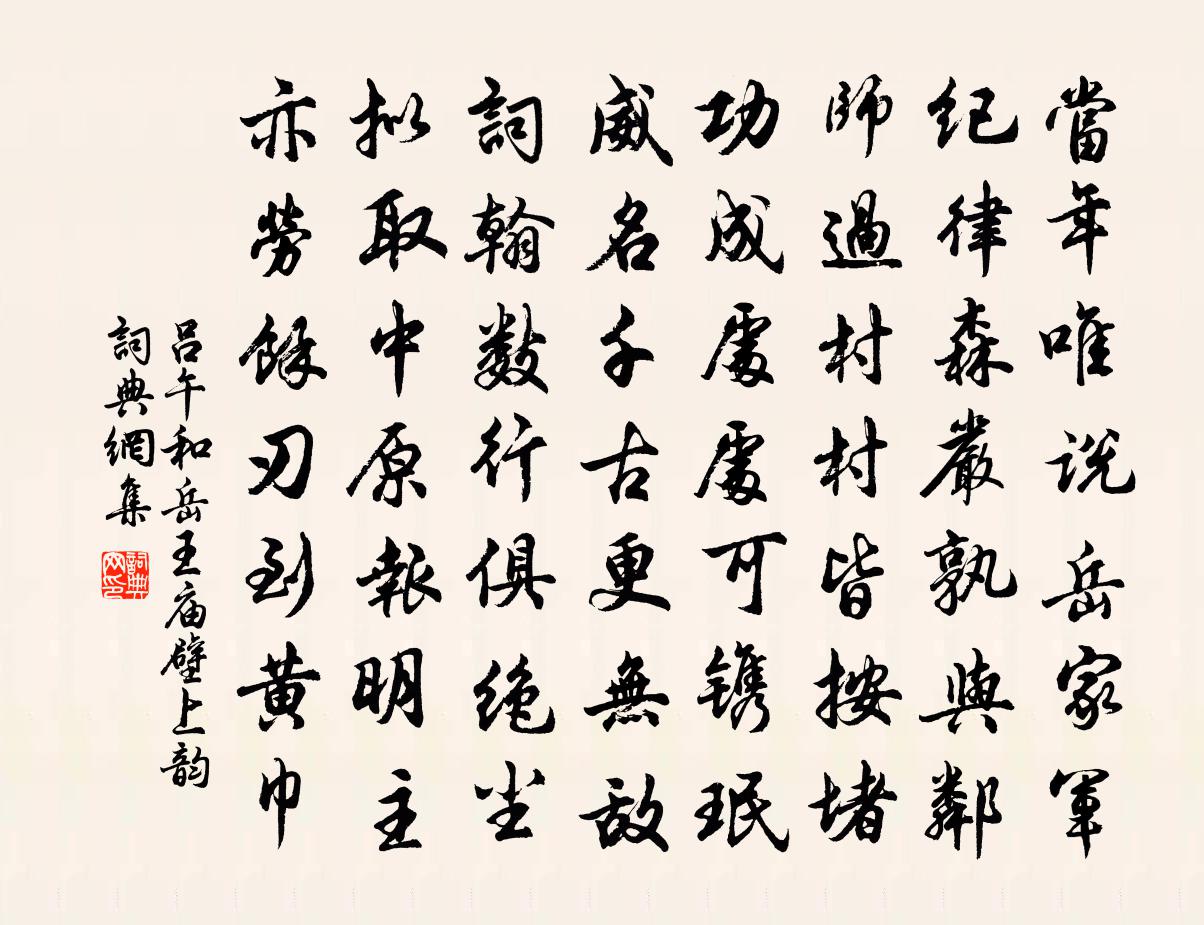 當年唯说岳家軍
紀律森嚴孰與鄰
師過村村皆按堵
功成處處可镌珉
威名千古更無敵
詞翰數行俱绝尘
拟取中原報明主
亦勞餘刃到黃巾
吕午和岳王庙壁上韵
詞典網集
詞典网印